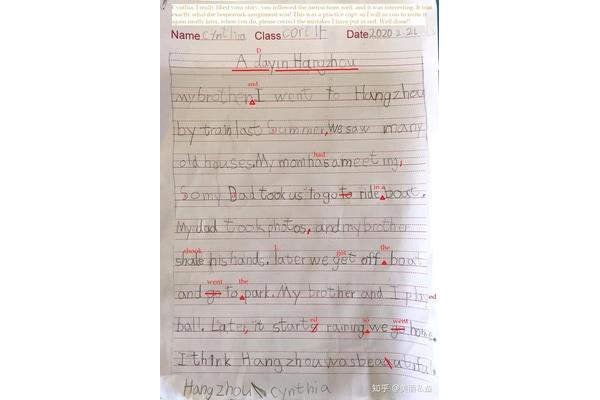 Cynthia, I really liked your story, you followed the instructions well, and it was interesting. It was
exactly what the homework assignment was! This was a practice copy so I will as you to write it
again neatly later, when you do, please correct the mistakes I have put in red. Well done!!
Name Cynthia Class CorC1F Date 2020.2.21
D
A day in Hangzhou
and
my brother I went to Hangzhou
by train last Summer, We saw many
old houses. My mom has a meeting,
had
So my Dad took us to go to ride boat.
in a
My dad took photos, and my brother
shook L got the
shake his hands. later we get off boat
went the
and go to park. My brother and I play
ed
ball. Later, it starts raining we go home.
ed so went
I think Hangzhou was beautiful
Hangzhou Cynthia
知乎 @美丽私塾